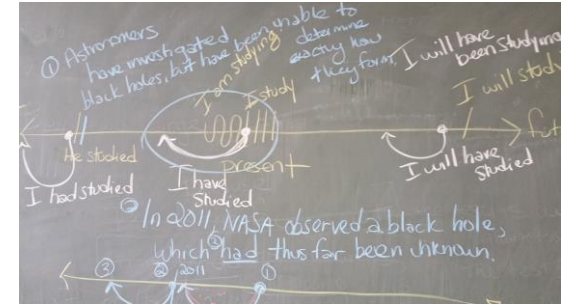 ① Astronomers
have investigated
black holes, but have been unable to
determine
exactly how
they form.
I am studying
I study
I will have
been studying
I will study
He studied
present
fut
I had studied
I have
studied
I will have
studied
② In 2011, NASA observed a black hole,
which ③ had thus far been unknown.
③ ② 2011 ①